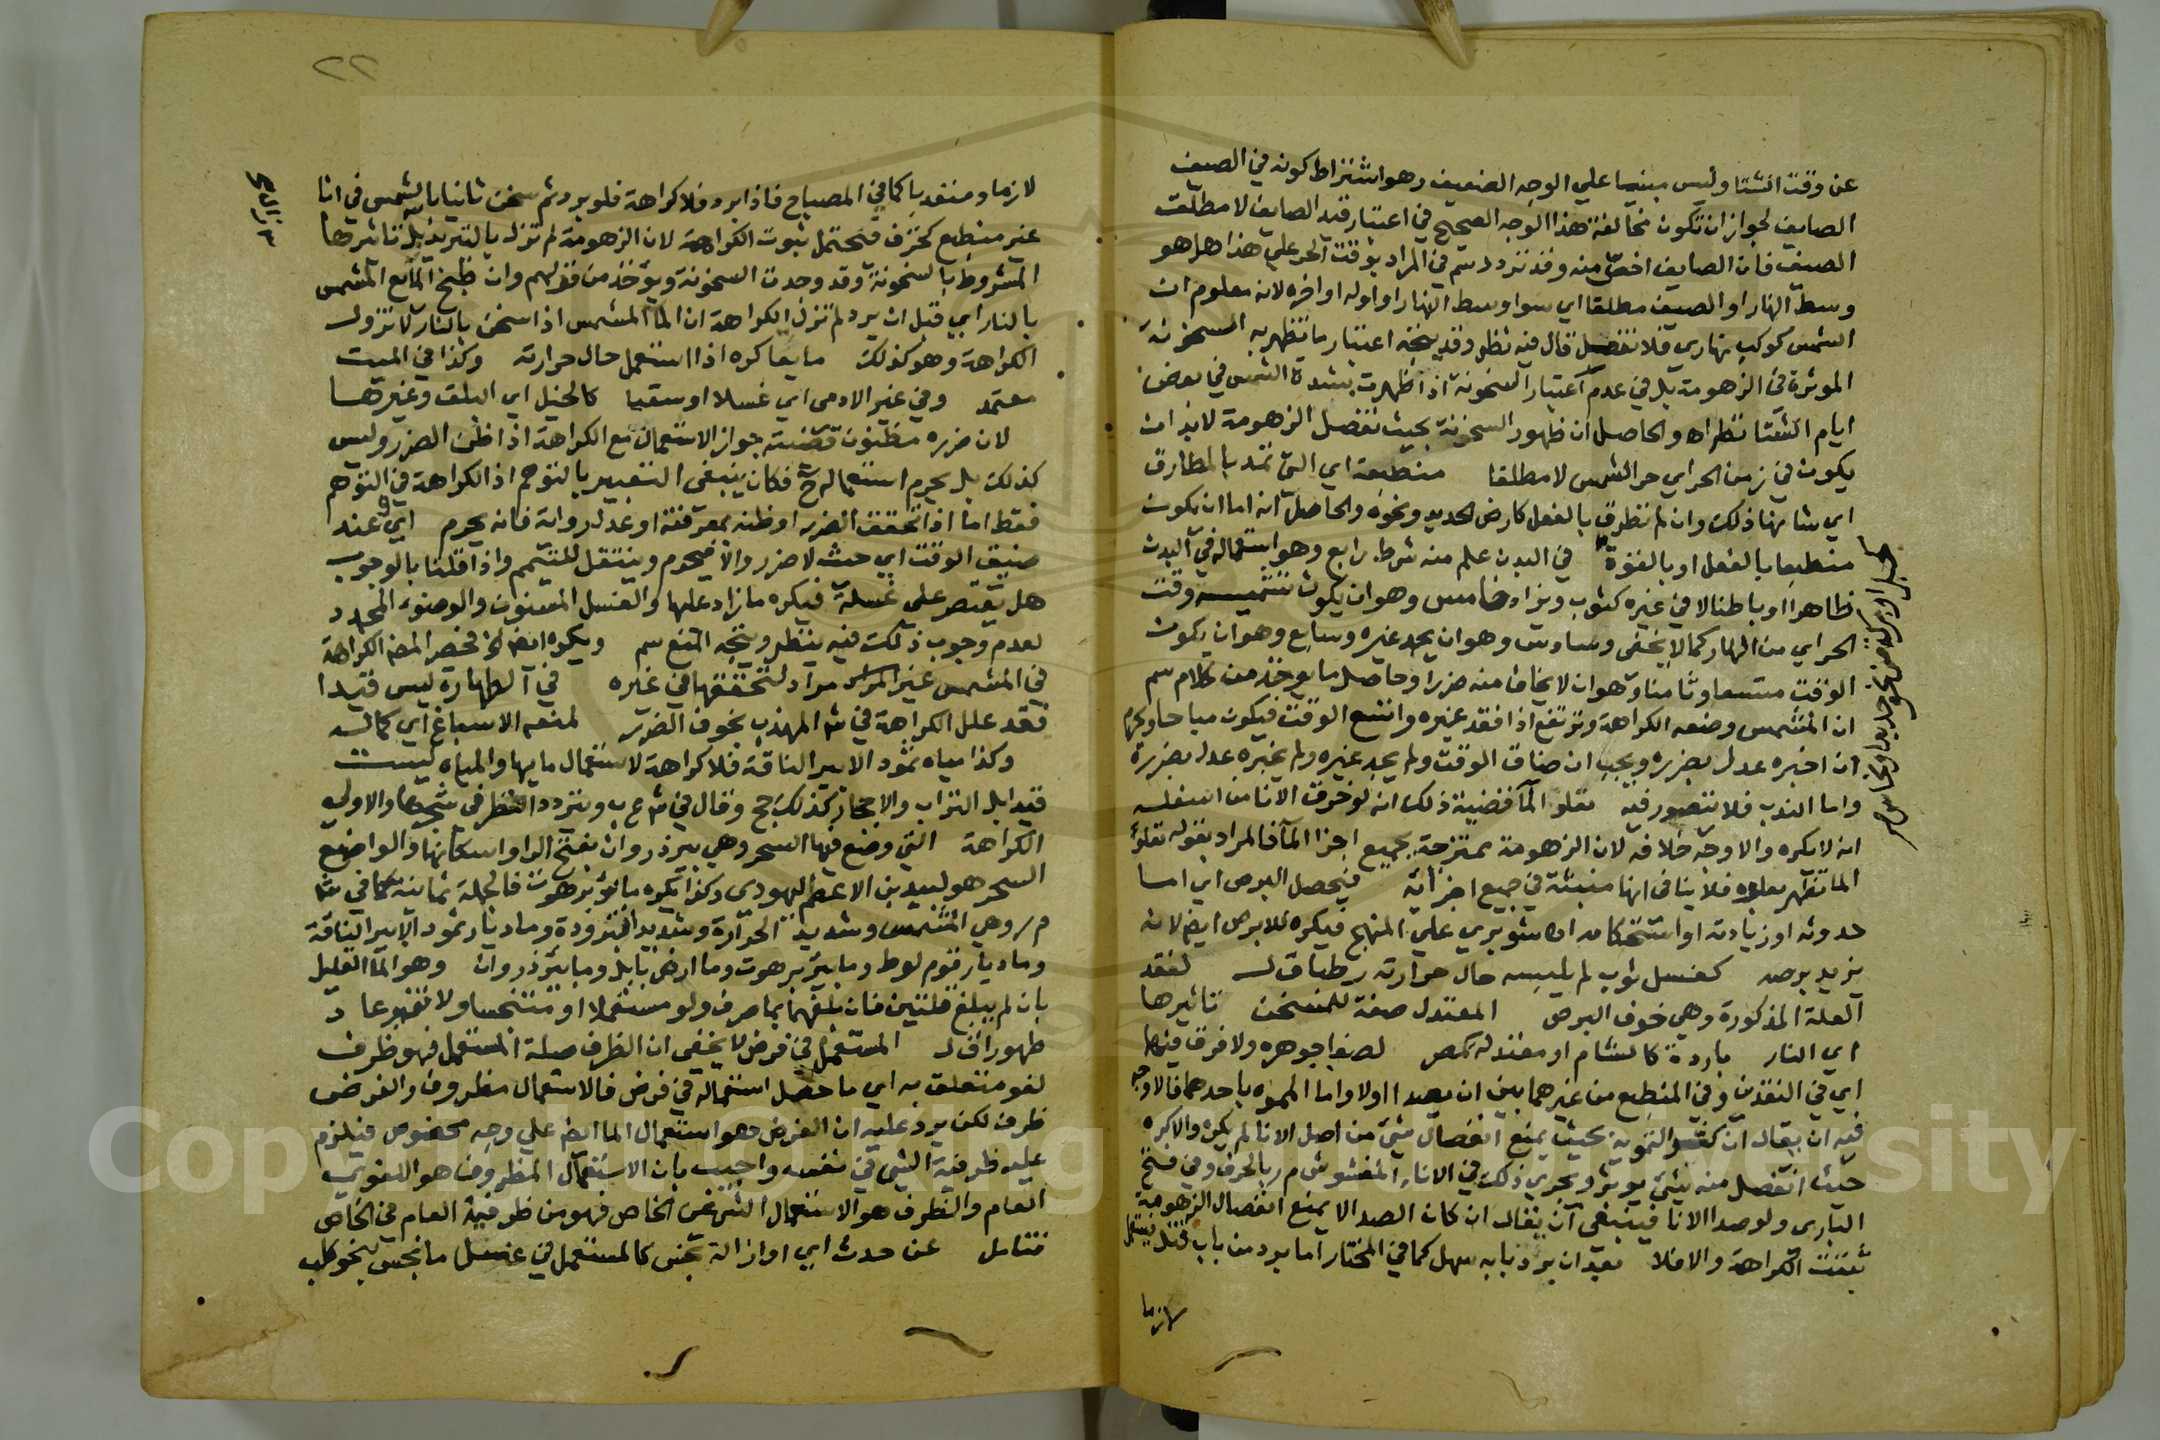 عن وقت الشتا وليس مبنيا علي الوجه الضعيف وهو اشتراط كونه في الصيف
الصايف لجواز ان تكون مخالفة هذا الوجه الصحيح في اعتبار قيد الصايف لا مطلق
الصيف فان الصايف اخص منه وقد تردد سم في المراد بوقت الحر علي هذا هل هو
وسط النهار او الصيف مطلقا اي سوا وسط النهار او اوله او اخره لانه معلوم ان
الشمس كوكب نهاري فلا تفصل قال فيه نظر وقد يتجه اعتبار ما تظهر به السخونة
الموثرة في الزهومة بل في عدم اعتبار السخونة اذا ظهرت بشدة الشمس في بعض
ايام الشتا نظر اه والحاصل ان ظهور السخونة بحيث تفصل الزهومة لابد ان
يكون في زمن الحر اي حر الشمس لا مطلقا منطبعة اي التي تمتد بالمطارق
اي شانها ذلك وان لم تطرق بالفعل كارض الحديد ونحوه والحاصل انه اما ان يكون
منطبعا بالفعل او بالقوة في البدن علم منه شرط رابع وهو استعماله في البدن
ظاهرا او باطنا لا في غيره كثوب ويزاد خامس وهو ان يكون تشميسه وقت
الحر اي من النهار كما لا يخفى وسادس وهو ان يجد غيره وسابع وهو ان يكون
الوقت متسعا وثامنا وهو ان لا يخاف منه ضررا وحاصل ما يوخذ من كلام سم
ان المشمس وضعه الكراهة وترتفع اذا فقد غيره واتسع الوقت فيكون مباحا ويحرم
ان اخبره عدل بضرره ويجب ان ضاق الوقت ولم يجد غيره ولم يخبره عدل بضرره
واما الندب فلا يتصور فيه تعلو المآ قضية ذلك انه لو خرق الانا من اسفله
انه لا يكره والاوجه خلافه لان الزهومة ممتزجة بجميع اجزا المآ فالمراد بقوله تعلو
الما تظهر بعلوه فلا ينافى انها منبثة في جميع اجزائه فيحصل البرص اي اما
حدوثه او زيادته او استحكامه اه شوبري علي المنهج فيكره للابرص ايض لانه
يزيد برصه كغسل ثوب لم يلبسه حال حرارته رطبا ق ل لفقد
العلة المذكورة وهي خوف البرص المعتدل صفة للمسخن تاثيرها
اي النار باردة كالشام او معتدلة كمصر لصفا جوهره ولا فرق فيهما
اي في النقدين وفي المنطبع من غيرهما بين ان يصدا اولا واما المموه باحدهما فالاوجه
فيه ان يقال ان كثر التمويه بحيث يمنع انفصال شيئ من اصل الانا لم يكره والاكره
حيث انفصل منه شيئ يوثر ويجري ذلك في الاناء المغشوش م ر بالحرف وفي فتح
الباري ولو صدا الانا فينبغى ان يقال ان كان الصدا لا يمنع انفصال الزهومة
ثبتت الكراهة والا فلا بعد ان برد بابه سهل كما في المختار اما برد من باب قتل فيستعمل
لازما
لازما ومتعديا كما في المصباح فاذا برد فلا كراهة فلو برد ثم سخن ثانيا بالشمس في انا
غير منطبع كخزف فيحتمل ثبوت الكراهة لان الزهومة لم تزل بالتبريد بل تاثيرها
المشروط بالسخونة وقد وجدت السخونة ويؤخذ من قولهم وان طبخ المآيع المشمس
بالنار اي قبل ان يرد لم تزل الكراهة ان المآ المشمس اذا سخن بالنار لا تزول
الكراهة وهو كذلك مايعا كره اذا استعمل حال حرارته وكذا في الميت
معتمد وفي غير الادمي اي غسلا او سقيا كالخيل اي البلق وغيرها
لان ضرره مظنون قضيته جواز الاستعمال مع الكراهة اذا ظن الضرر وليس
كذلك بل يحرم استعماله ح فكان ينبغى التعبير بالتوهم اذ الكراهة في التوهم
فقط اما اذا تحقق الضرر او ظنه بمعرفته او عدل رواية فانه يحرم اي عند
ضيق الوقت اي حيث لا ضرر والا فيحرم وينتقل للتيمم واذا قلنا بالوجوب
هل يقتصر علي غسلة فيكره ما زاد عليها والغسل المسنون والوضوء المجدد
لعدم وجوب ذلك فيه ينظر ويتجه المنع سم ويكره ايض فحصر المص الكراهة
في المشمس غير المراد مراد لتحققها في غيره في الطهارة ليس قيدا
فقد علل الكراهة في ش المهذب بخوف الضرر لمنعه الاسباغ اي كماله
وكذا مياه ثمود الابير الناقة فلا كراهة لاستعمال مايها والمياه ليست
قيدا بل التراب والاحجار كذلك حج وقال في ش ع ب ويتردد النظر في شجرها والاولي
الكراهة التي وضع فيها السحر وهي بير ذروان بفتح الرا واسكانها والواضع
السحر هو لبيد بن الاعصم اليهودي وكذا يكره ما بئر برهوت فالجملة ثمانية كما في ش
م ر وهي المشمس وشديد الحرارة وشديد البرودة وما ديار ثمود الابير الناقة
وما ديار قوم لوط وما بئر برهوت وما ارض بابل وما بئر ذروان وهو الما القليل
بان لم يبلغ قلتين فان بلغهما بما صرف ولو مستعملا او متنجسا ولا تغير عاد
طهورا ق ل المستعمل في فرض لا يخفي ان الظرف صلة المستعمل فهو ظرف
لغو متعلق به اي ما حصل استعماله في فرض فالاستعمال مظروف والفرض
ظرف لكن يرد عليه ان الفرض هو استعمال الما ايض علي وجه مخصوص فيلزم
عليه ظرفية الشئ في نفسه واجيب بان الاستعمال المظروف هو اللغوي
العام والظرف هو الاستعمال الشرعي الخاص فهو من ظرفية العام في الخاص
فتامل عن حدث اي او ازالة نجس كالمستعمل في غسل ما نجس بنحو كلب
٢٢
Copyright © King Saud University